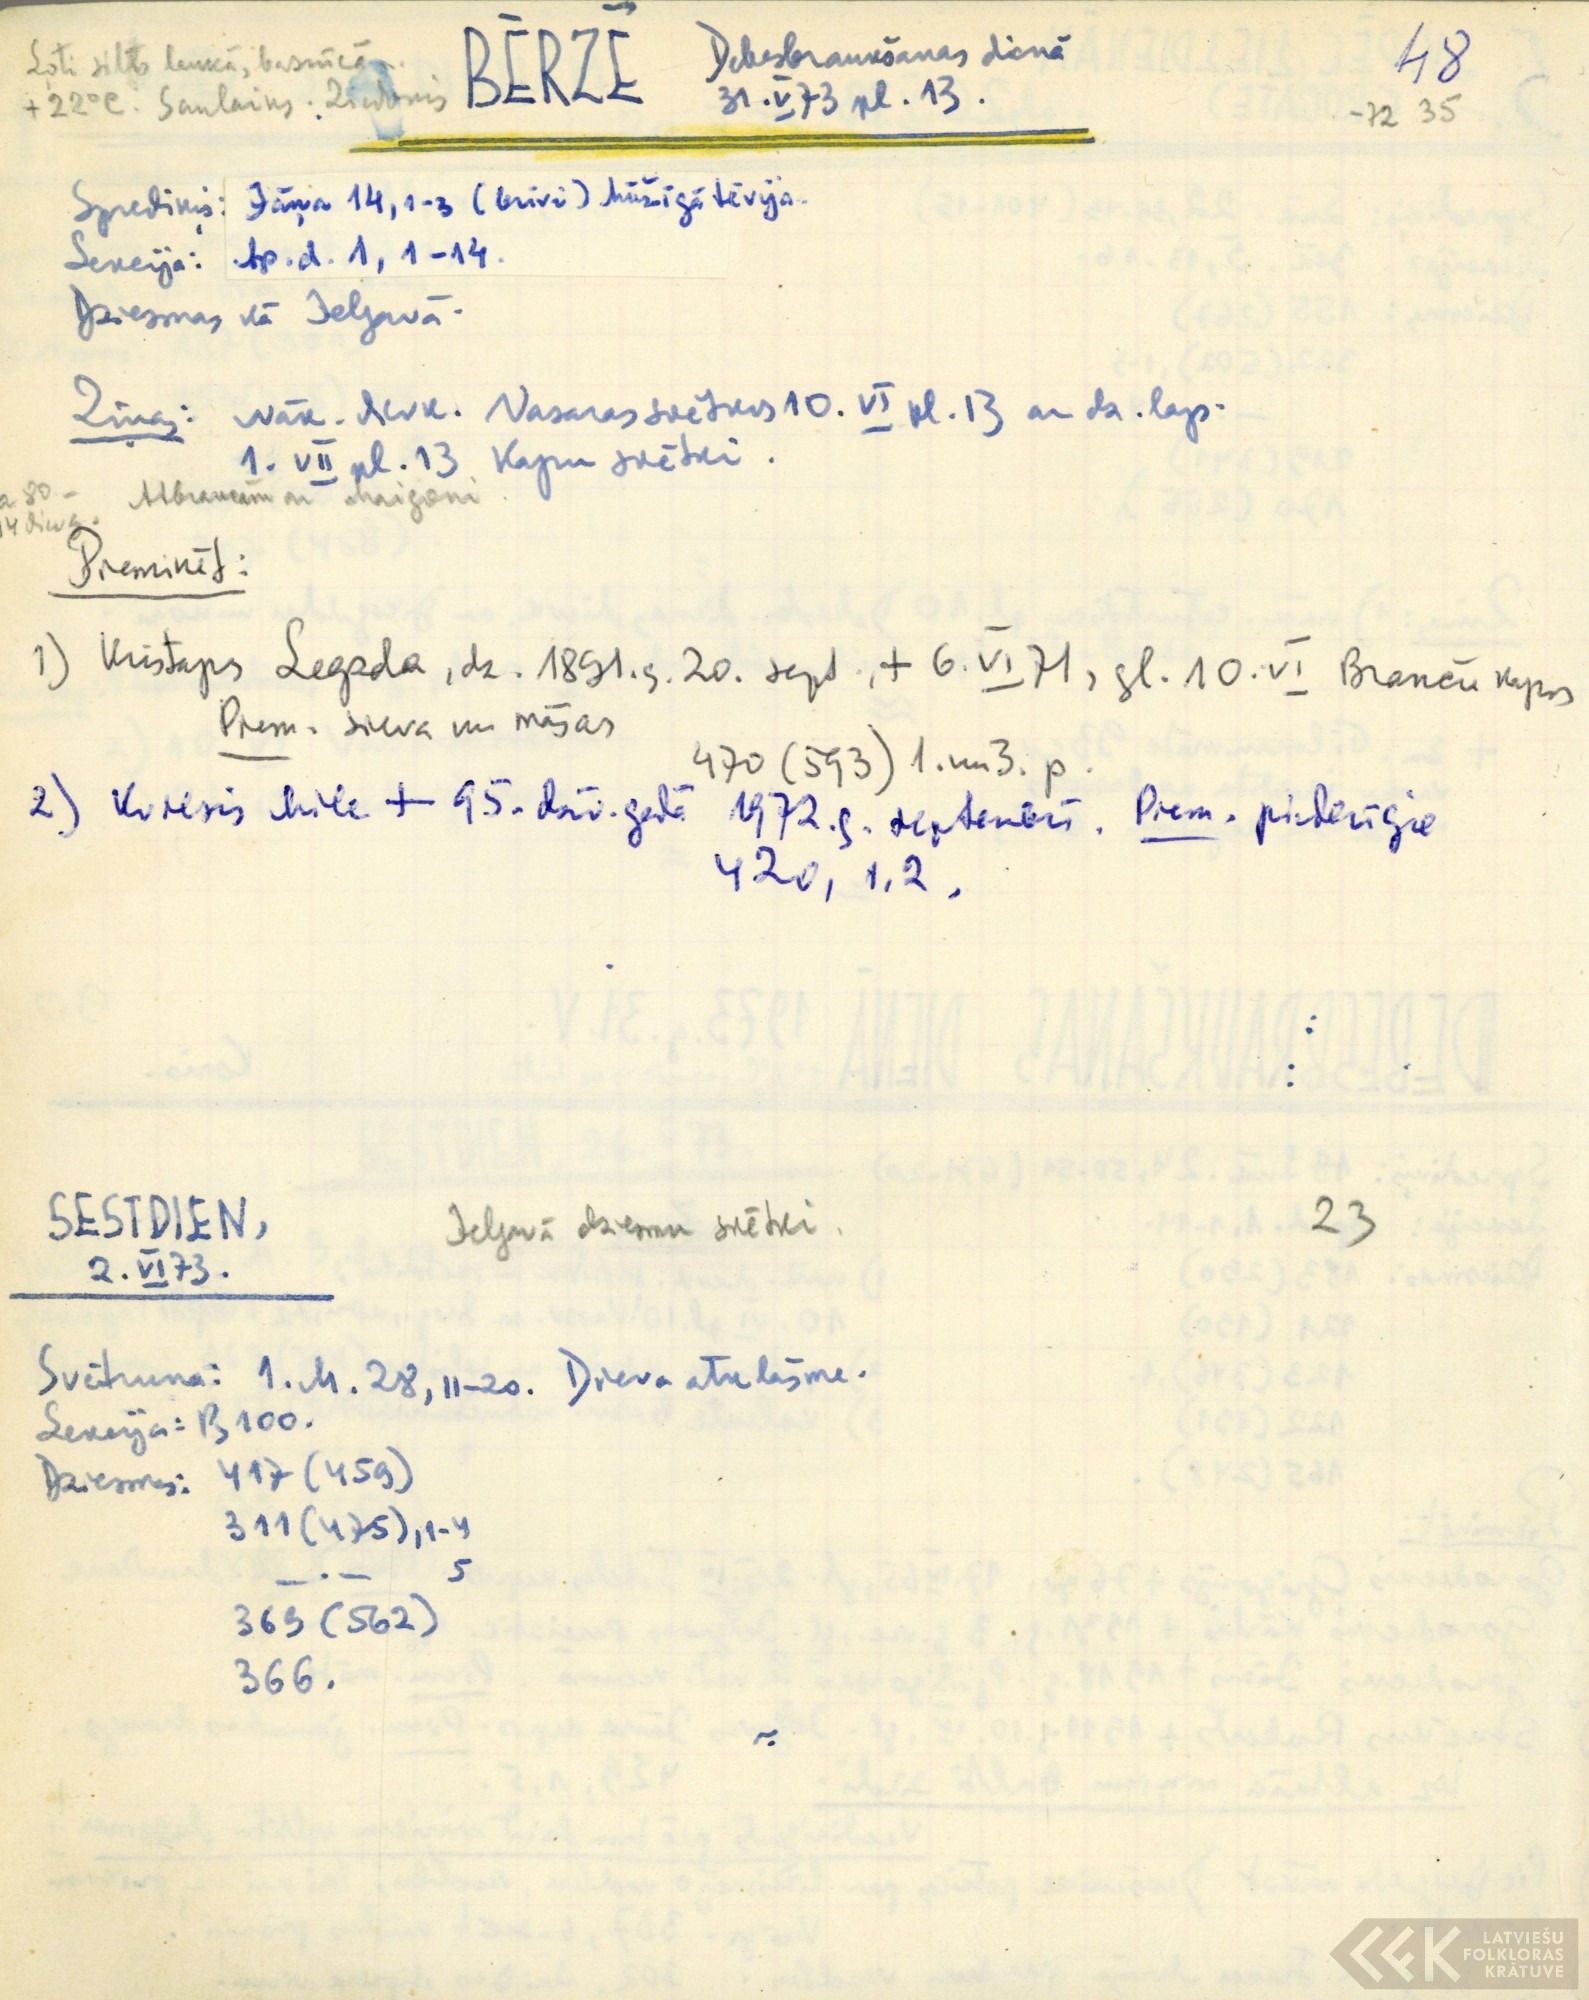 Ļoti silts laukā, baznīcā
+22°C. Saulains. Ziedonis
BĒRZĒ
Debesbraukšanas dienā
31.V73 pl. 13.
48
-72 35
Sprediķis: Jāņa 14, 1-3 (brīvi) Mūžīgā tēvija.
Lekcija: Ap.d. 1, 1-14.
Dziesmas kā Jelgavā.
Ziņas: Nāk. dievk. Vasarassvētkos 10. VI pl. 13 ar dz.
1. VII pl. 13 Kapu svētki.
Atbraucām ar Maigoni.
14 dievg.
Pieminēt:
1) Kristaps Legzda, dz. 1891.g. 20. sept., + 6. VI 71, gl. 10. VI Kapos
Piem. sieva un māsas
470 (593) 1. un 3. p.
2) Mile + 95. dzīv. gadā 1972.g. septembrī. Piem. piederīgie
420, 1.2.
SESTDIEN,
2. VI 73.
Jelgavā dziesmu svētki.
23
Svētruna: 1. M. 28, 11-20. Dieva atklāsme.
Lekcija: Ps 100.
Dziesmas: 417 (459)
311 (475), 1-4
— . — 5
369 (562)
366.
LATVIEŠU
FOLKLORAS
KRĀTUVE